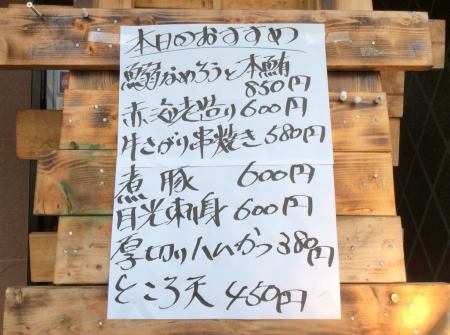 本日のおすすめ
鰯なめろうと本鮪
850円
赤海老造り600円
牛さがり串焼き580円
煮豚 600円
目光刺身600円
厚切りハムかつ380円
ところ天 450円